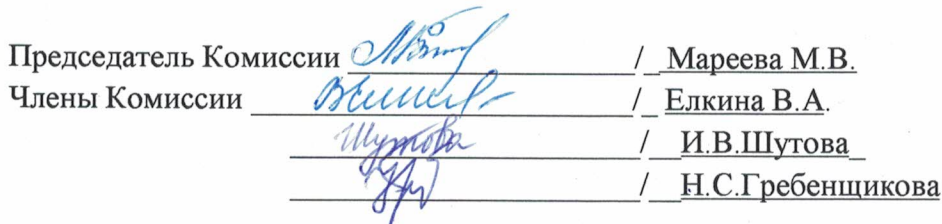 Председатель Комиссии / Мареева М.В.
Члены Комиссии / Елкина В.А.
Шутова / И.В.Шутова
/ Н.С.Гребенщикова